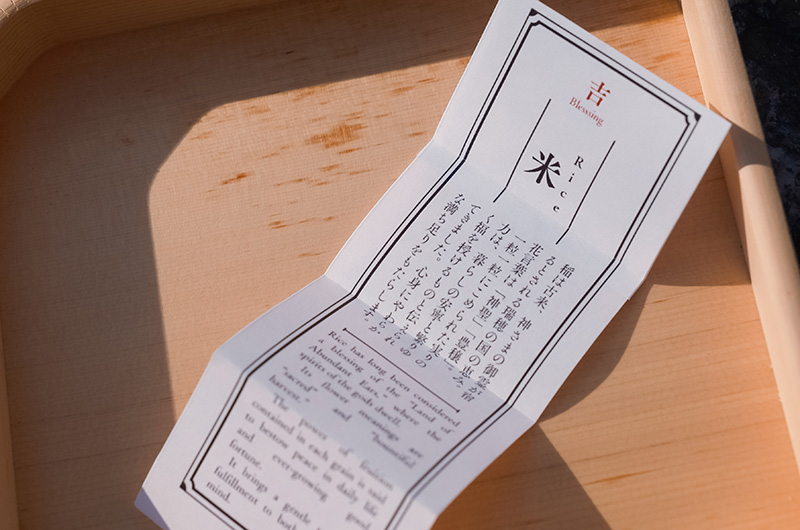 吉
Blessing
米
Rice
稲は古来、神さまの御霊が宿
るとされる瑞穂の国の恵み。
花言葉は「神聖」「豊穣」
一粒一粒にこめられた実りの
力は、暮らしの安寧と繁りゆ
く福を授けるものと伝えられ
てきました。心身にやわらか
な満ち足りをもたらします。
Rice has long been considered
a blessing of the "Land of
Abundant Ears," where the
spirits of the gods dwell.
Its flower meanings are
"sacred" and "bountiful
harvest."
The power of fruition
contained in each grain is said
to bestow peace in daily life
and ever-growing good
fortune.
It brings a gentle
fulfillment to both
mind.